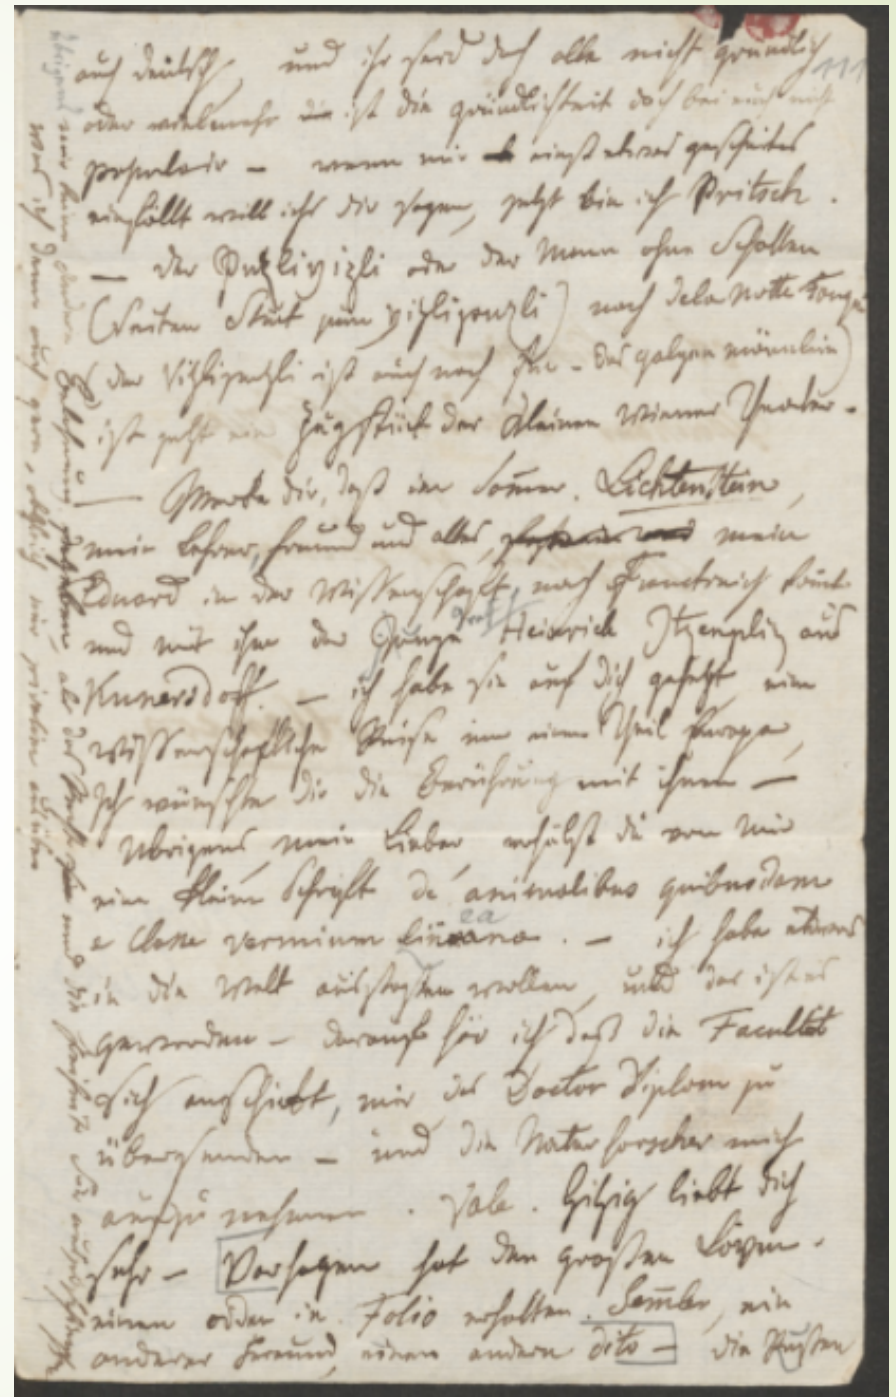 auch deutsch, und ihr seid doch alle nicht gründlich
111
oder vielmehr ist die gründlichkeit doch bei euch nicht
populair – wenn mir einst etwas gescheites
einfällt will ichs dir sagen, jetzt bin ich Pritsch.
— der Puzlivizli oder der Mann ohne Schatten
(Seiten Stük zum Vizlipuzli) nach dela Motte Fouqué
(der Vizlipuzli ist auch nach Fou – das galgen männlein)
ist jetzt ein Zugstück der kleinen Wiener Theater.
— Merke dir, daß im Sommer. Lichtenstein,
mein Lehrer, freund und alles, mein
Eduard in der Wissenschaft, nach Franckreich kömt
und mit ihm der Junge Graff Heinrich Itzenpliz aus
Kunersdorff. — ich habe sie auf dich gehezt, eine
wissenschaftliche Reise um einen Theil Europa,
Ich wünschte dir die Berührung mit ihnen —
Übrigens, mein Lieber, erhälst du von mir
eine kleine Schrifft de animalibus quibusdam
e classe vermium linnaeana. — ich habe etwas
in die Welt ausgehen wollen, und das ist es
geworden – darauf hör ich daß die Facultät
sich anschickt, mir das Doctor Diplom zu
übersenden – und die Naturforscher mich
aufzu nehmen. Vale. Hitzig liebt dich
sehr – Varhagen hat den großen Löwen.
einen orden in Folio erhalten. Semler, ein
anderer Freund, einen andern dito – die Russen
übrigens mir keine andern Belohnung als das und die freiheit
was ich denn auch gern,